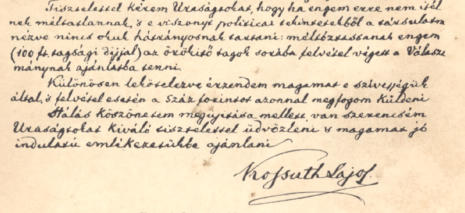 Tisztelettel kérem Uraságtokat, hogy ha engem erre nem itél-
nek méltatlannak, s e viszonyt politicai tekintetekből a társulatra
nézve nincs okuk hátrányosnak tartani: méltóztassanak engem
(100 ft tagsági díjjal) az örökítő tagok sorába felvétel végett a Válasz-
mánynak ajánlatba tenni.
Különösen lekötelezve érzendem magamat e szivességük
által, s felvétel esetén a Száz forintot azonnal megfogom Küldeni
Hálás Köszönetem megújítása mellett, van szerencsém
Uraságtokat Kiváló tisztelettel üdvözleni s magamat jó
indulatú emlékezetükbe ajánlani
Kossuth Lajos